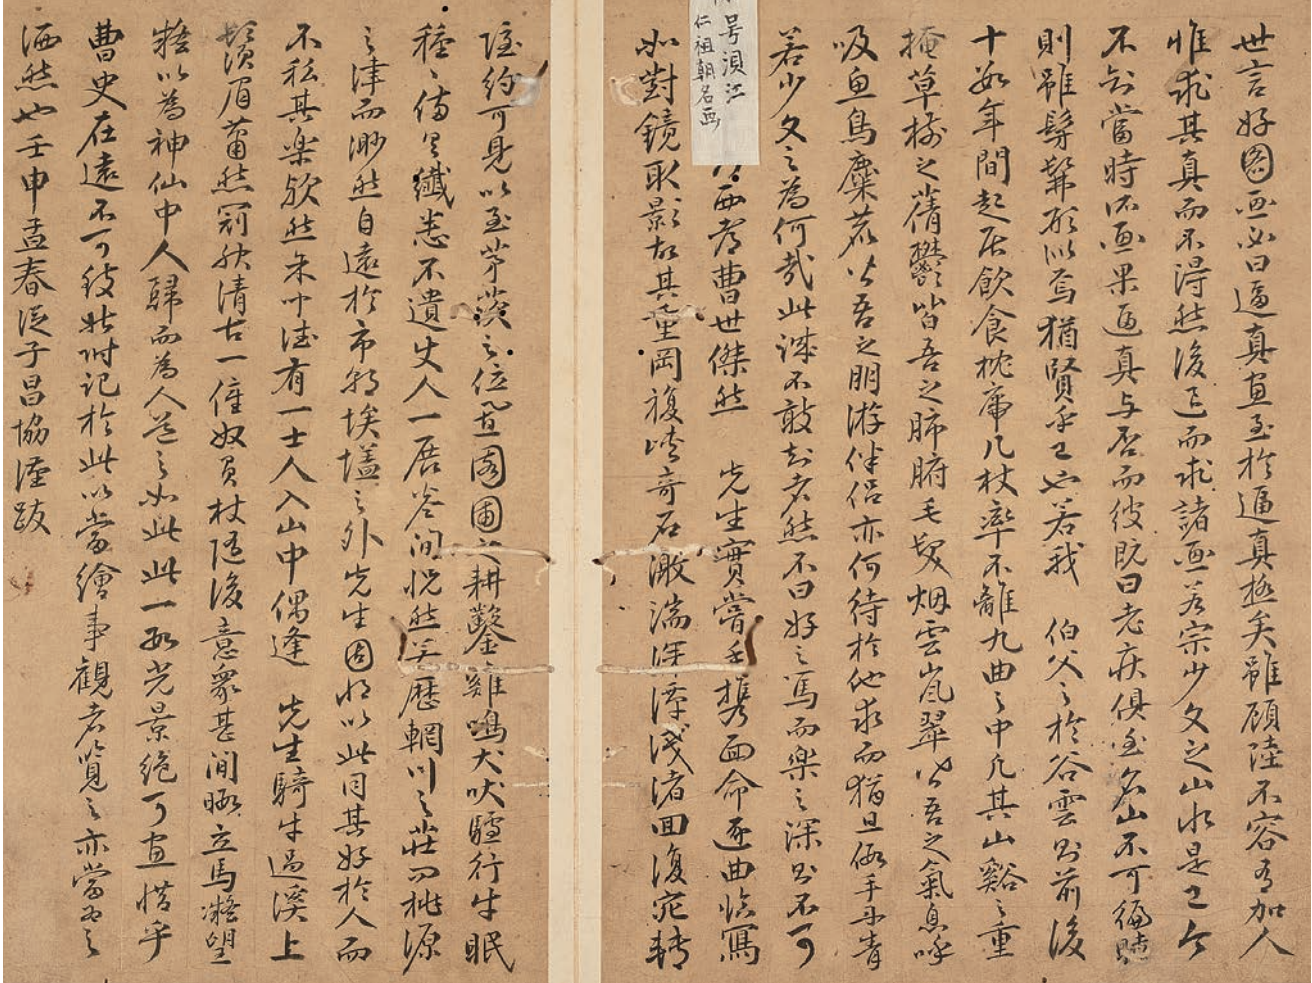 世言好圖画必曰逼真畫至於逼真極矣雖顧陸不容有加人
惟求其真而不得然後迂而求諸画若宗少文之山水是已今
不知當時所画果逼真与否而彼既曰老疾俱至名山不可徧睹
則雖髣髴形似焉猶賢乎已也若我 伯父之於谷雲則前後
十數年間起居飲食枕席几杖率不離九曲之中凡其山谿之重
掩草樹之蒨鬱皆吾之肺腑毛髮烟雲嵐翠皆吾之氣息呼
吸魚鳥麋鹿皆吾之朋游伴侶亦何待於他求而猶且假手丹青
若少文之為何哉此誠不敢知者然不曰好之篤而樂之深則不可
号浿江
仁祖朝名画
西都曹世傑然 先生實嘗手携面命逐曲臨寫
如對鏡取影故其重岡複嶺奇石激湍深潭淺渚回復宛轉
隱約可見以至茅茨之位置園圃之耕鑿雞鳴犬吠驢行牛眠
種種備具纖悉不遺丈人一展卷間怳然若歷輞川之莊而桃源
之津而渺然自遠於市朝埃壒之外先生固將以此同其好於人而
不私其樂歟然有一士人入山中偶逢 先生騎牛過溪上
鬚眉蕭然冠服清古一僮奴負杖隨後意象甚閒暇立馬凝望
疑以為神仙中人歸而為人道之如此此一段光景絕可畫惜乎
曹史在遠不可致姑附記於此以當繪事觀者覽之亦當為之
洒然也壬申孟春從子昌協謹跋